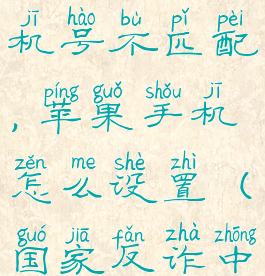 jī hào bù pǐ pèi
机号不匹配
píng guǒ shǒu jī
,苹果手机
zěn me shè zhì
怎么设置(
guó jiā fǎn zhà zhōng
国家反诈中